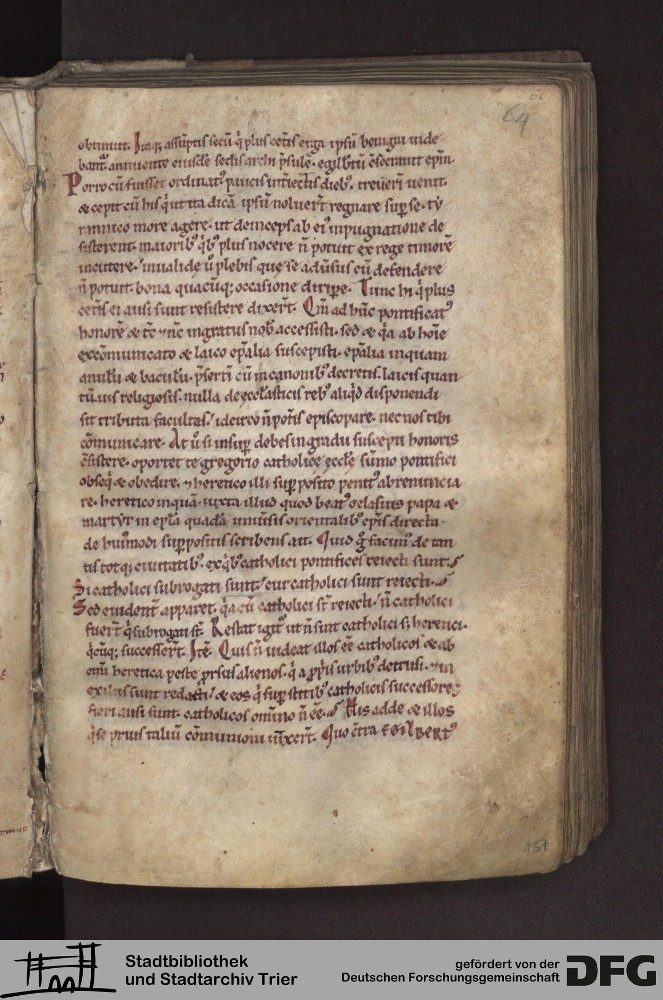 64
obtinuit. Itaq; assūptis secū q̇ plus cet̄is erga ipsū benigni uide
bant̄. annuente eiusdē sedis archi p̄sule. egilbtū c̄secrauit ep̄m.
Porro cū fuisset ordinat᷒ paucis int̄iectis dieb᷒. treuerī uenit.
& cepit cū his q̇ ut ita dicā ipsū noluer̄t regnare sup̱ se. tẏ
rannico more agere. ut deinceps ab ei᷒ inpugnatione de
sisterent. maiorib᷒ q̇b᷒ plus nocere n̄ potuit ex rege timorē
incutere. inualidę ů plebis quę se adūsus eū defendere
n̄ potuit. bona quacūq; occasione diripe. Tunc hi q̇ plus
cet̄is ei ausi sunt resistere dixer̄t. Qm̄ ad hūc pontificat᷒
honorē & tc̄ ⁊ nc̄ ingratus nob᷒ accessisti. sed & q̇a ab hoīe
excōmunicato & laico ep̄alia suscepisti. ep̄alia inquam
anulū & baculū. p̄sertī cū in canonib᷒ decretis. laicis quan
tūuis religiosis. nulla de ęcclasticis reb᷒ aliq̇d disponendi
sit tributa facultas. idcirco n̄ potis episcopare. nec nos tibi
cōmunicare. At ů si insup̱ debes in gradu suscepti honoris
c̄sistere. oportet te gregorio catholicę eccłę sūmo pontifici
obseq̇ & obedire. ⁊ heretico illi sup̱posito penit᷒ abrenuncia
re. heretico inquā. iuxta illud quod beat᷒ gelasius papa &
martẏr in ep̄la quadā uniūsis orientalib᷒ ep̄is directa
de hui᷒modi sup̱positis scribens ait. Quid g̊ facim᷒ de tan
tis totq; ciuitatib᷒. ex q̇b᷒ catholici pontifices reiecti sunt.
Si catholici subrogati sunt. cur catholici sunt reiecti.
Sed euident̄ apparet. q̇a cū catholici st̄ reiecti. n̄ catholici
fuer̄t q̇ subrogati st̄. Restat igit᷒ ut n̄ sint catholici s; heretici.
q̇cūq; successer̄t. Itē. Quis n̄ uideat illos ēē catholicos & ab
omī heretica peste p̱rsus alienos. q̇ a p̱p̱iis urbib᷒ detrusi. ⁊ in
exiliū sunt redacti. & eos q̇ sup̱stitib᷒ catholicis successores
fieri ausi sunt. catholicos om̄ino n̄ ēē. His adde & illos
q̇ se prius taliū cōmunioni iūxer̄t. Quo c̄tra EGILBERT᷒
157
Stadtbibliothek
und Stadtarchiv Trier
gefördert von der
Deutschen Forschungsgemeinschaft
DFG